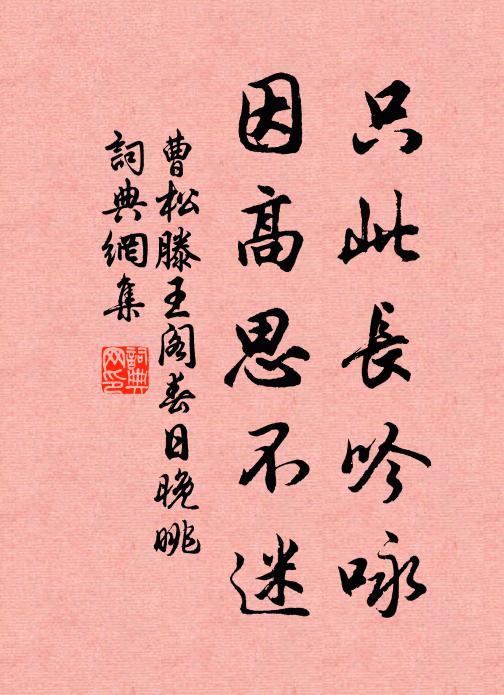 只此長吟咏
因高思不迷
曹松滕王阁春日晚眺
詞典網集
詞典網印